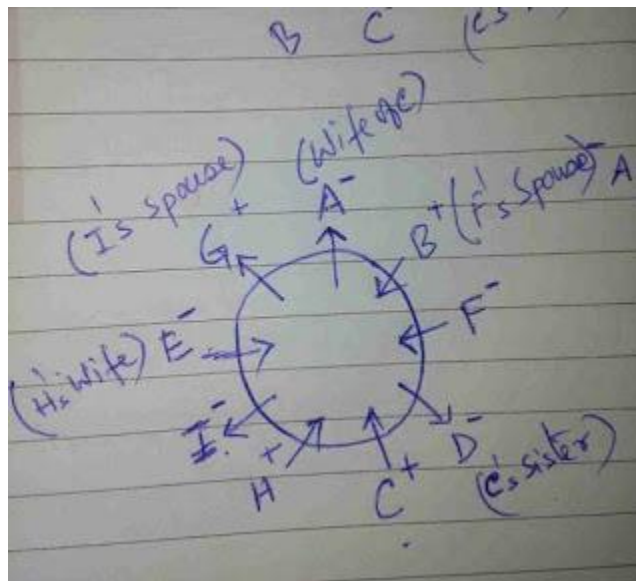 B C
(Wife of C)
(I's spouse)
G+ A- B+ (F's Spouse) - A
F-
(H's Wife) E-
I-
H+ C+ D-
(C's sister)